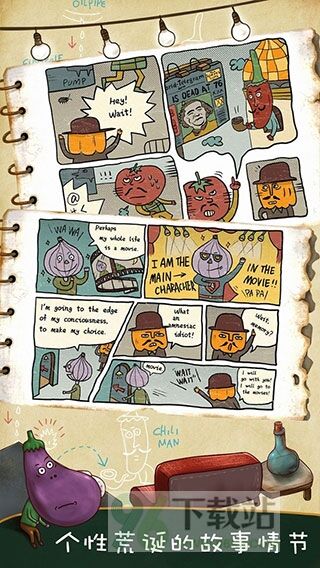 OILPIPE
PUMP
Hey!
Wait!
IS DEAD AT 76
WA WA!
Perhaps
my whole life
is a movie.
I AM THE
MAIN
CHARACHER
IN THE
MOVIE!!
PA PA!
I'm going to the edge
of my conciousness,
to make my choice.
What
an
amnesiac
idiot!
Wait,
memory?
movie
WAIT
WAIT~!
I will
go with you!
I will go
to the movies!
CHILI
MAN
下载站
个性荒诞的故事情节